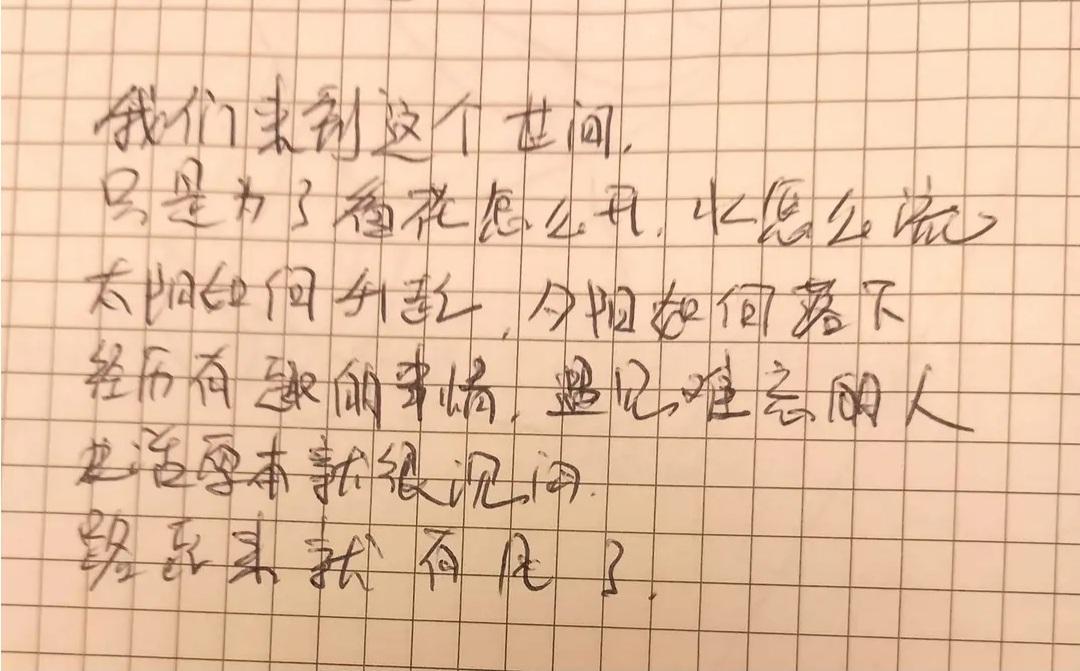 我们来到这个世间,
只是为了看花怎么开,水怎么流
太阳如何升起,夕阳如何落下
经历有趣的事情,遇见难忘的人
生活原本就很沉闷,
跑起来就有风了.